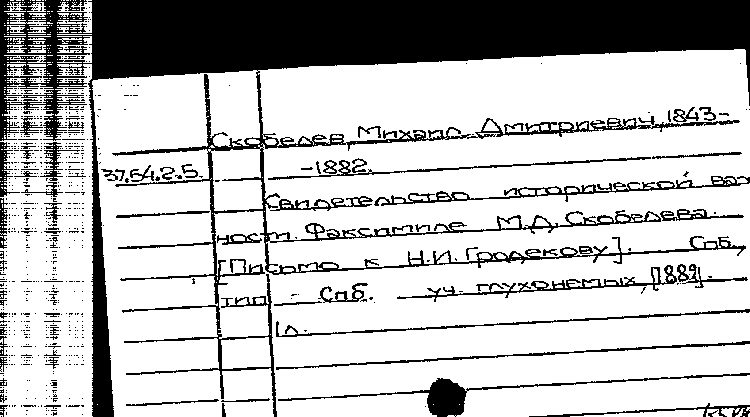 Скобелев, Михаил Дмитриевич, 1843-
37.54.2.5. -1882.
Свидетельство исторической важ
ности. Факсимиле М.Д. Скобелева.
[Письмо к Н.И. Гродекову]. Спб,
тип - Спб. уч. глухонемых, [1882].
1л.